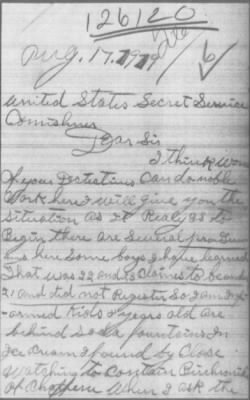 126120
Aug. 17. 1919
United States Secret Service
Comishner
Dear Sir
I think
of your Detectives Can do noble
Work here I will give you the
Situation as It Realy is to
Begin there are Several
here Some boys I have learned
That was 22 and 23 claimes to be and
21 and did not Register So I am
-armed Kids years old are
behind Soda fountains In
Ice Cream I found by Close
Watching to Contain
of When I ask the